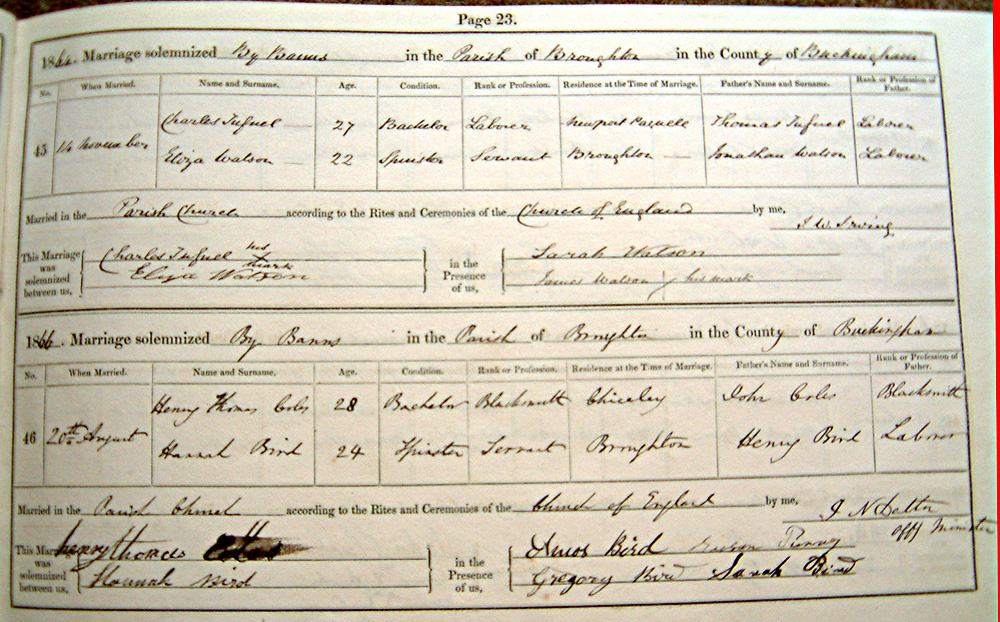 Page 23.
186 . Marriage solemnized By Banns in the Parish of Broughton in the County of Buckingham
No. When Married. Name and Surname. Age. Condition. Rank or Profession. Residence at the Time of Marriage. Father's Name and Surname. Rank or Profession of Father.
45 November Charles Tufnel 27 Bachelor Laborer Newport Thomas Tufnel Laborer
Eliza Watson 22 Spinster Servant Broughton Jonathan Watson Laborer
Married in the Parish Church according to the Rites and Ceremonies of the Church of England by me, J. W. Irving
This Marriage was solemnized between us, Charles Tufnel his mark in the Presence of us, Sarah Watson
Eliza Watson James Watson his mark
1866. Marriage solemnized By Banns in the Parish of Broughton in the County of Buckingham
No. When Married. Name and Surname. Age. Condition. Rank or Profession. Residence at the Time of Marriage. Father's Name and Surname. Rank or Profession of Father.
46 20th August Henry Thomas Coles 28 Bachelor Blacksmith Chiceley John Coles Blacksmith
Hannah Bird 24 Spinster Servant Broughton Henry Bird Laborer
Married in the Parish Church according to the Rites and Ceremonies of the Church of England by me, Offg Minister
This Marriage was solemnized between us, henry thomas in the Presence of us, Amos Bird
Hannah Bird Gregory Bird Sarah Bird